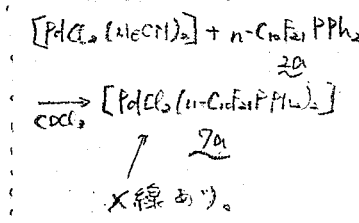 [PdCl₂(MeCN)₂] + n-C₁₀F₂₁PPh₂
2a
→ CDCl₃ [PdCl₂(n-C₁₀F₂₁PPh₂)₂]
7a
X線あり。